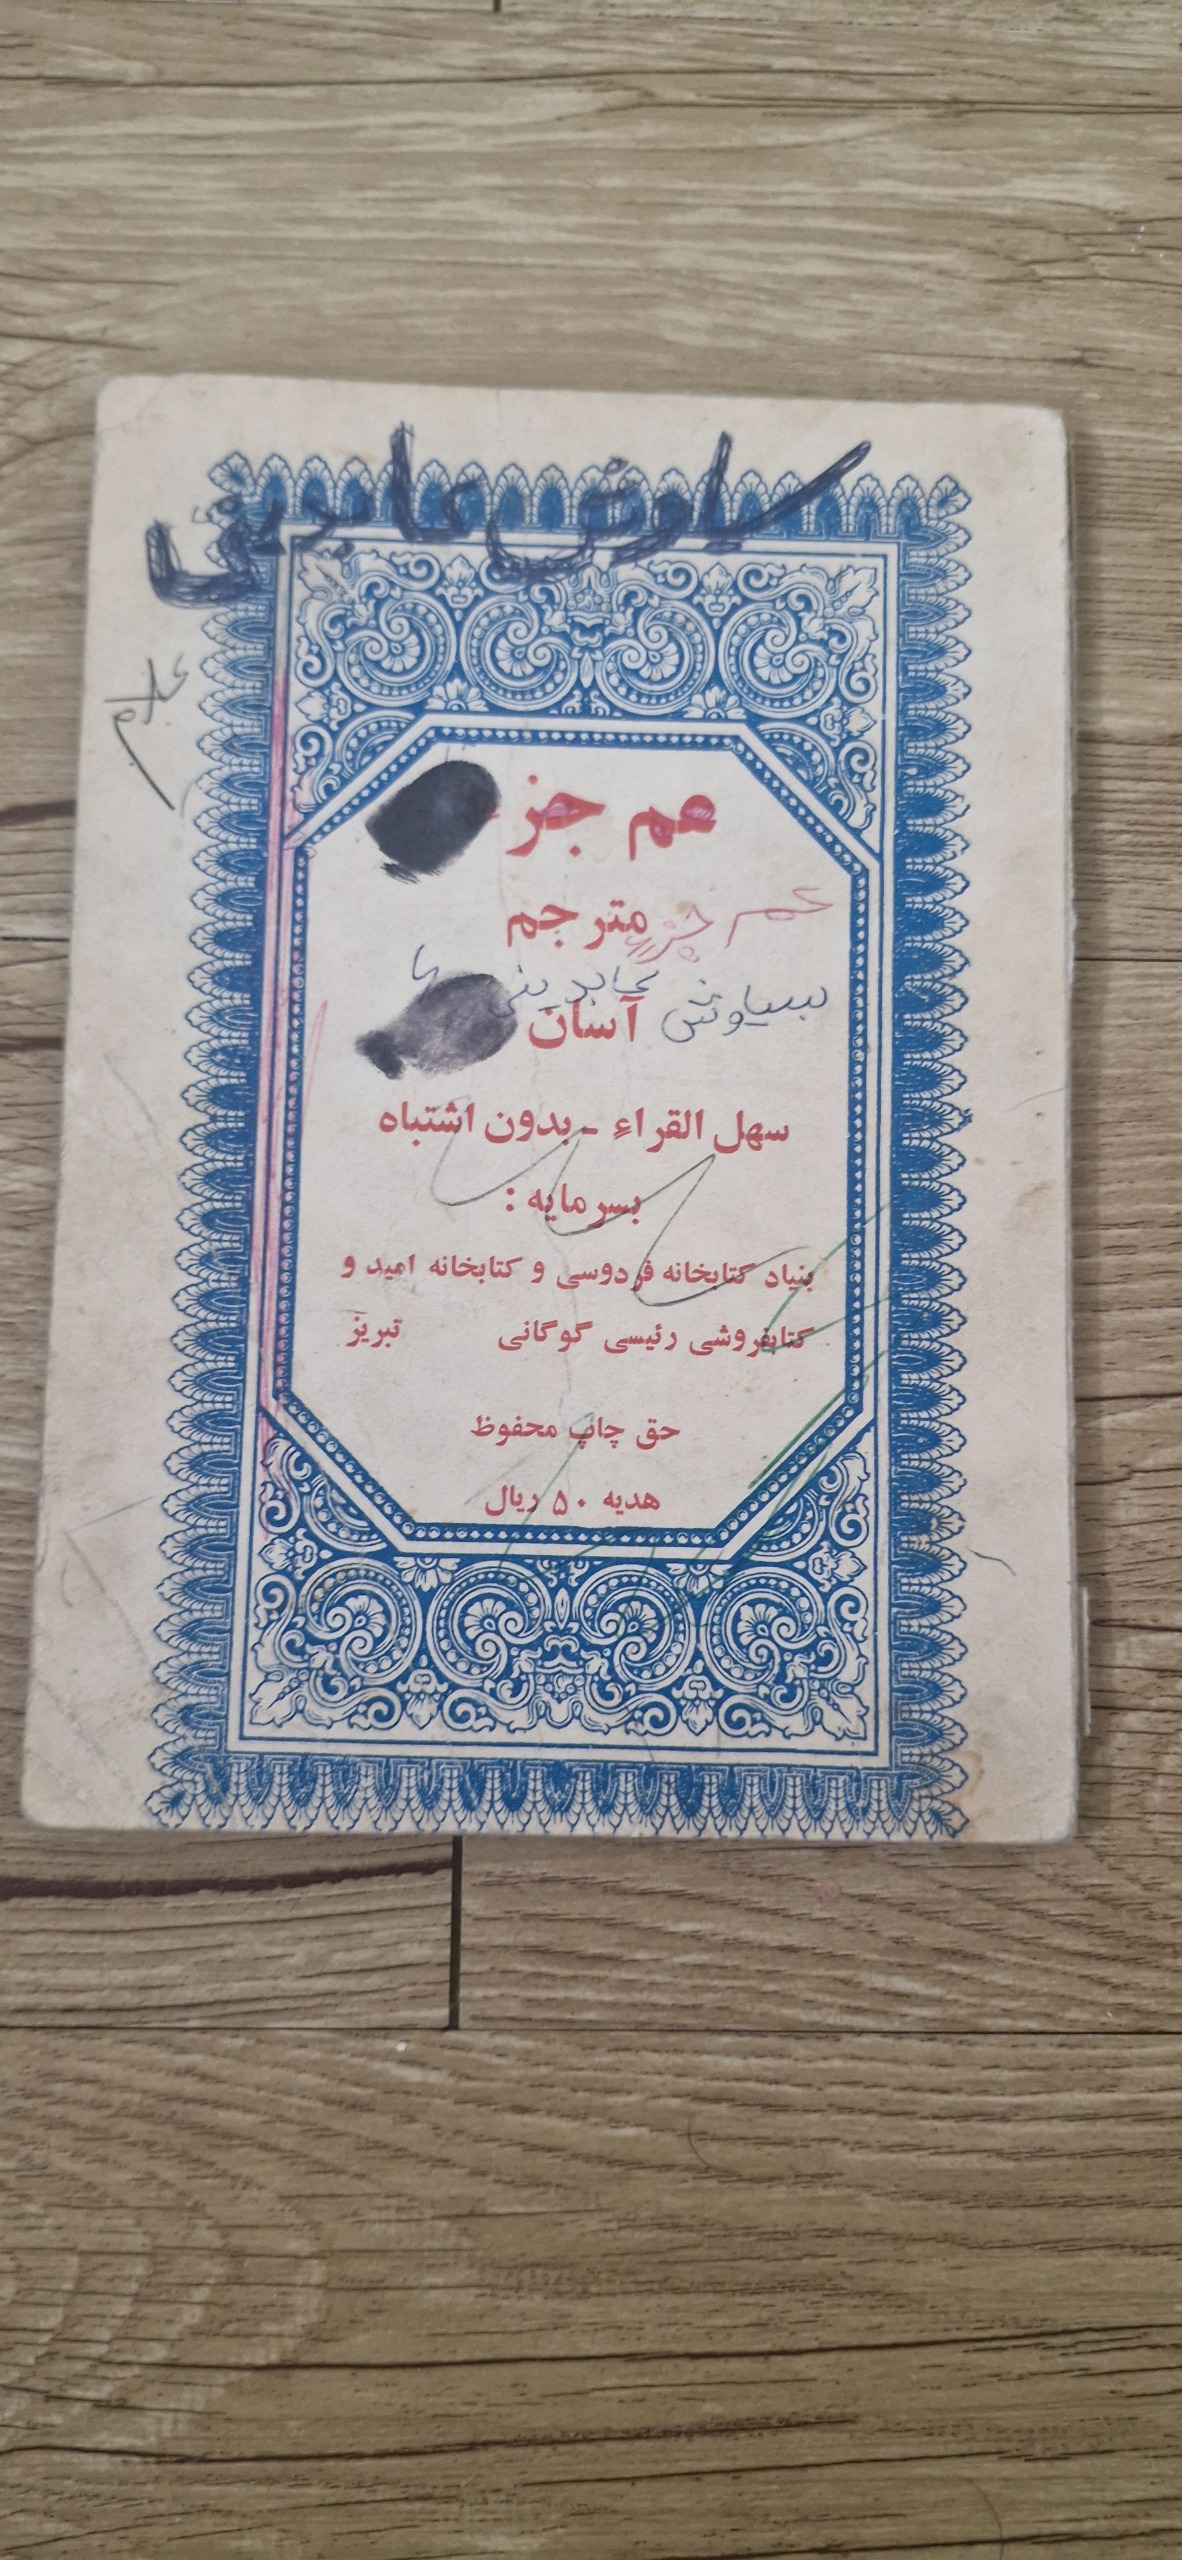 سیاوش عابدینی
عم جزء
مترجم
عم جزء
سیاوش عابدینی
آسان
سهل القراء - بدون اشتباه
بسرمایه :
بنیاد کتابخانه فردوسی و کتابخانه امید و
کتابفروشی رئیسی گوگانی تبریز
حق چاپ محفوظ
هدیه ۵۰ ریال